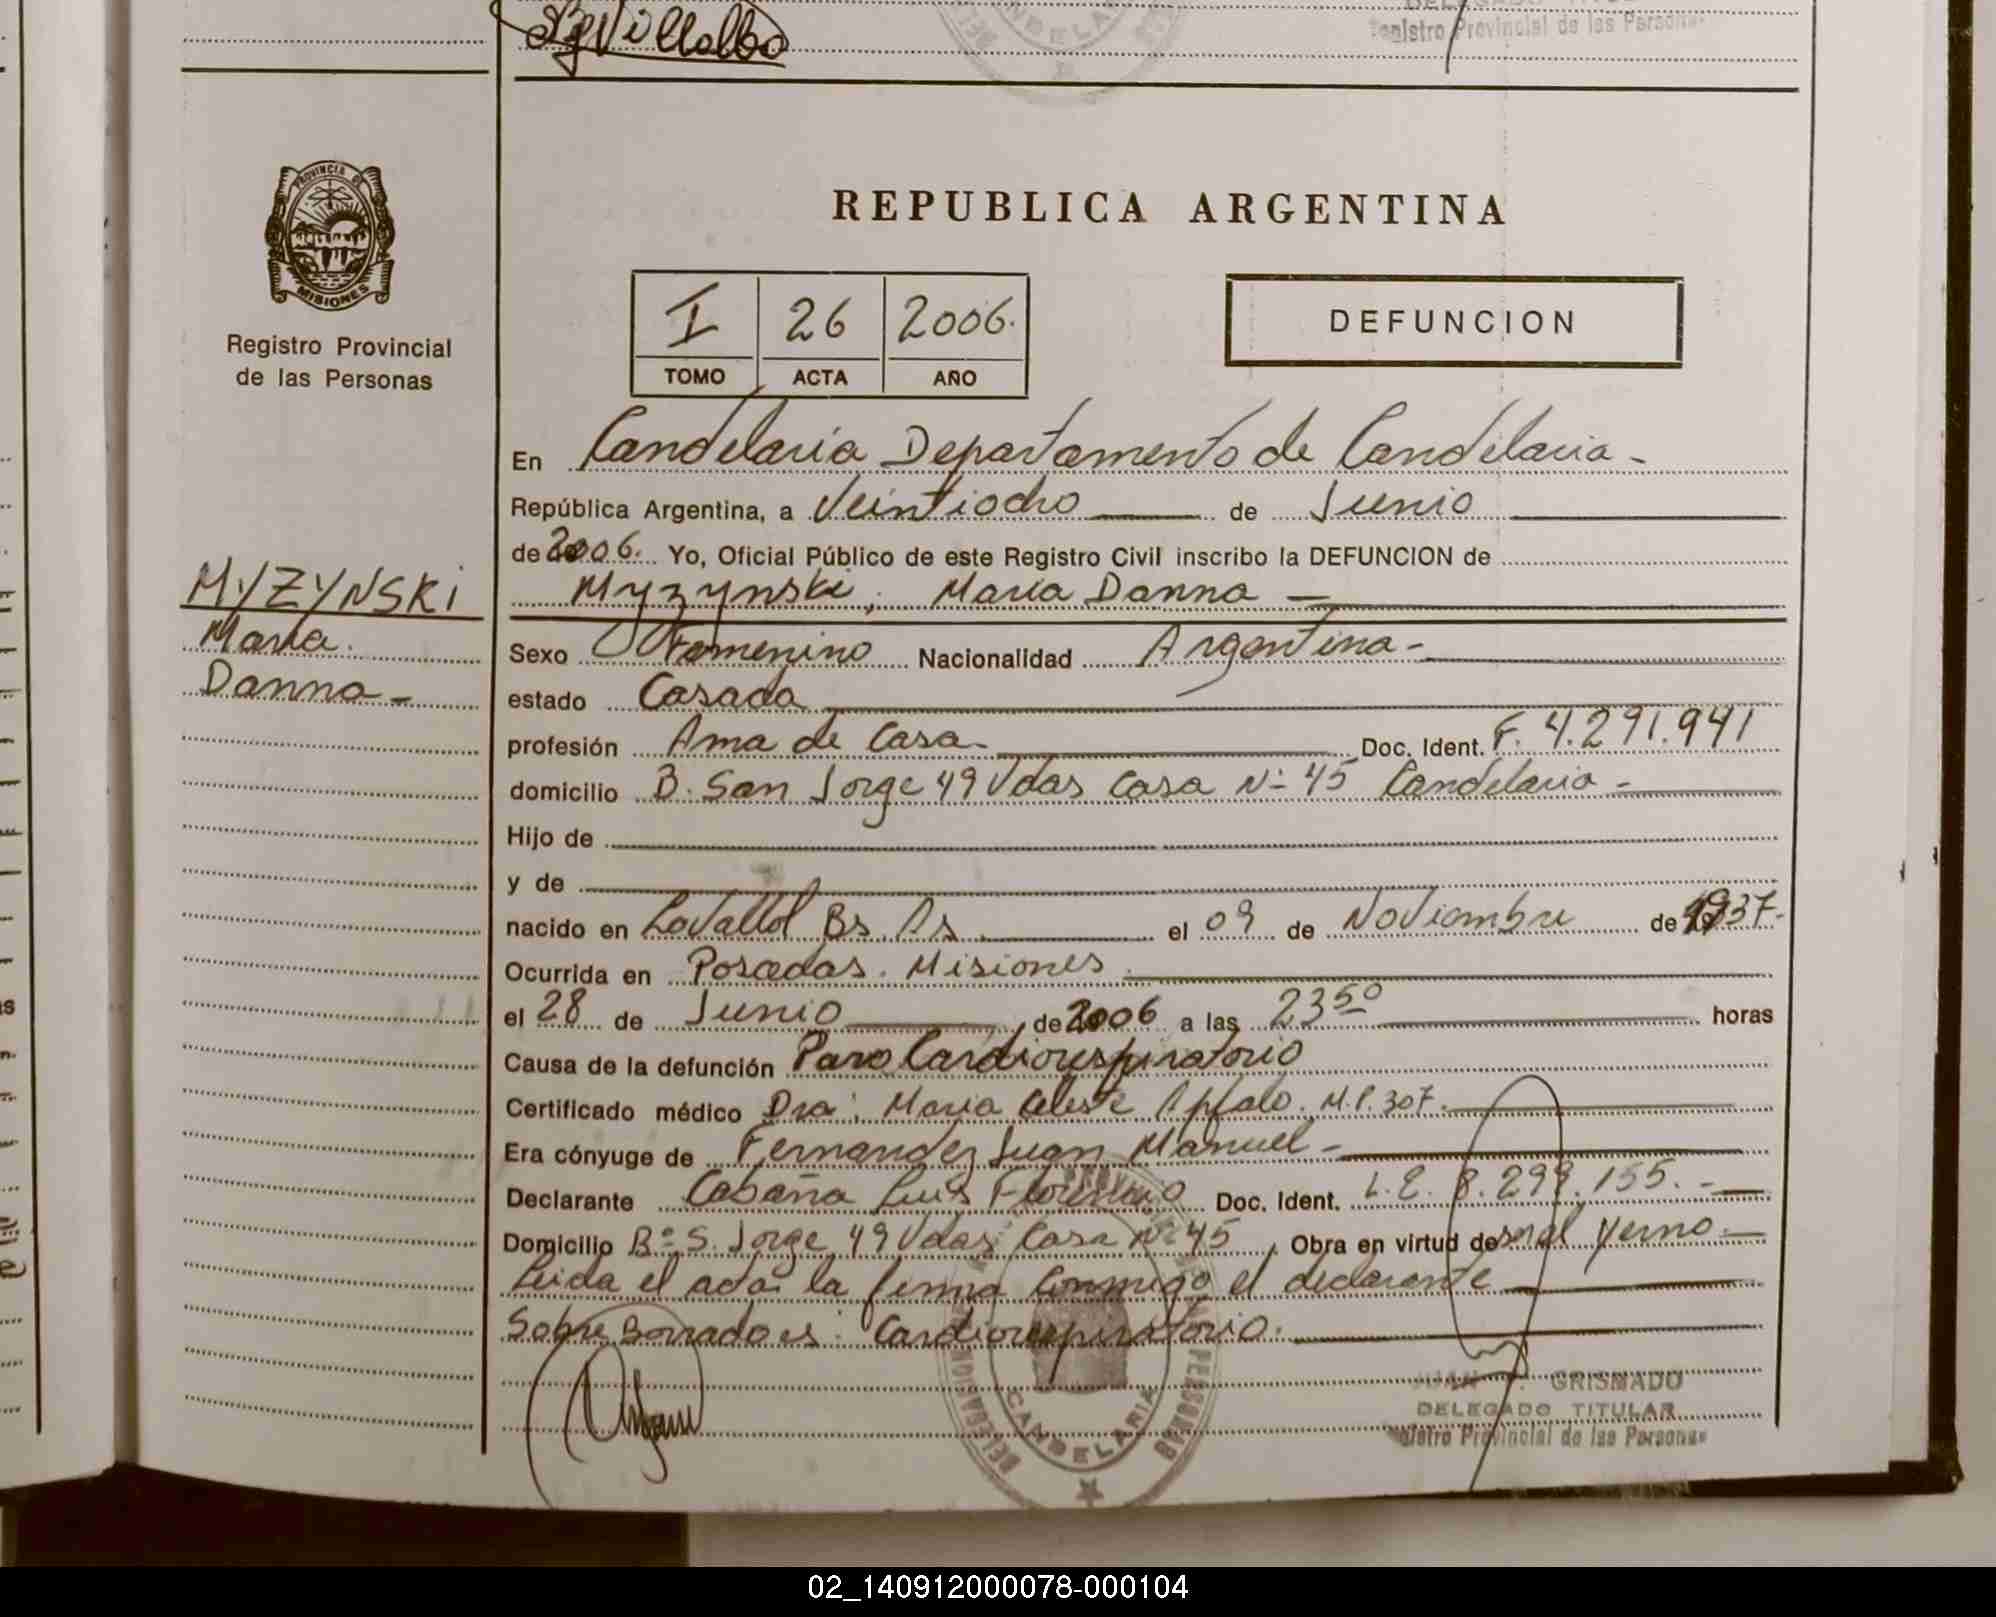 Villalba
Registro Provincial de las Personas
PROVINCIA DE
MISIONES
Registro Provincial
de las Personas
REPUBLICA ARGENTINA
I 26 2006.
TOMO ACTA AÑO
DEFUNCION
En Candelaria Departamento de Candelaria -
República Argentina, a Veintiocho de Junio
de 2006. Yo, Oficial Público de este Registro Civil inscribo la DEFUNCION de
MYZYNSKI
Myzynski, Maria Danna -
Maria.
Danna -
Sexo Femenino Nacionalidad Argentina -
estado Casada
profesión Ama de Casa. Doc. Ident. F. 4.291.941
domicilio B. San Jorge 49 Vdas Casa Nº 45 Candelaria -
Hijo de
y de
nacido en Lavallol Bs. As. el 09 de Noviembre de 1937.
Ocurrida en Posadas. Misiones.
el 28 de Junio de 2006 a las 23:50 horas
Causa de la defunción Paro Cardiorespiratorio
Certificado médico Dra. Maria Celeste M.P. 307.
Era cónyuge de Fernandez Juan Manuel -
Declarante Cabaña Luis Florencio Doc. Ident. L.E. 8.299.155. -
Domicilio Bº S. Jorge 49 Vdas Casa Nº 45, Obra en virtud de ser el yerno. -
Leida el acta la firma conmigo el declarante
Sobre Borrado es: Cardiorespiratorio.
JUAN GRISMADO
DELEGADO TITULAR
Registro Provincial de las Personas
DELEGACION CANDELARIA
02_140912000078-000104